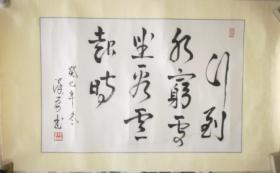 行到
水窮處
坐看雲
起時
癸巳年冬